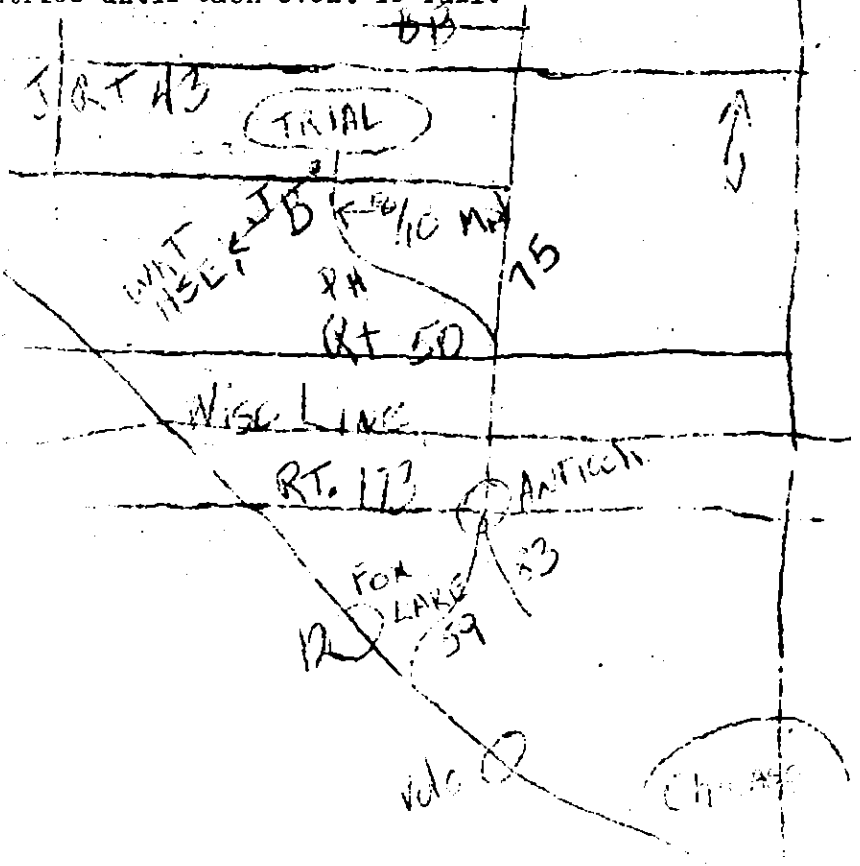 BB
J RT 43
TRIAL
JB
6/10 Mi
75
PH
Rt 50
Wisc Line
RT. 173
ANTIOCH
FOX
LAKE
59
83
12
Volo
Chicago